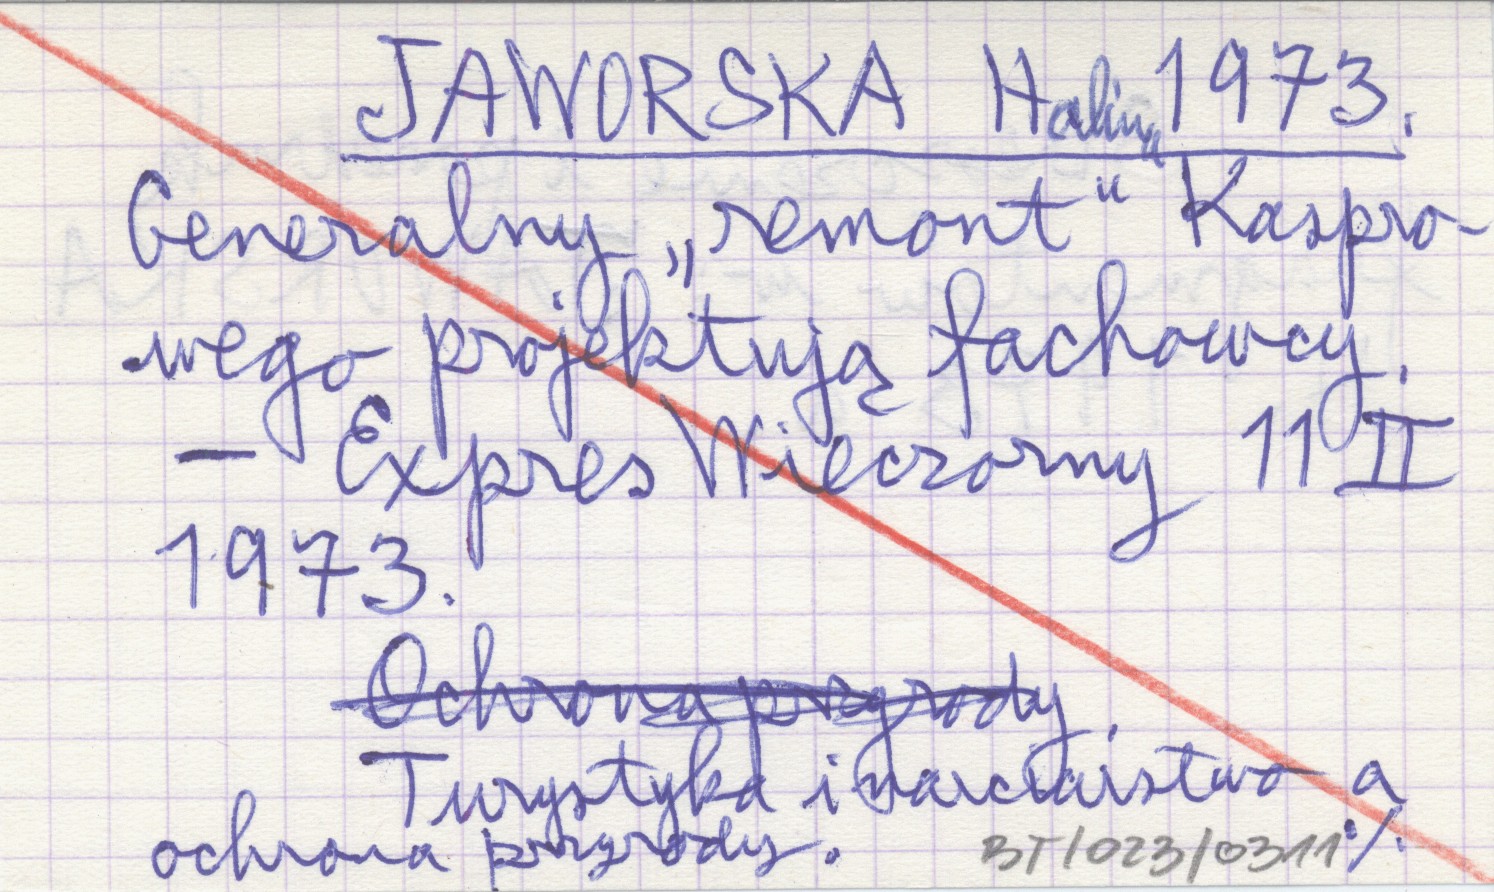 JAWORSKA Halina 1973.
Generalny „remont" Kaspro-
wego projektują fachowcy.
— Expres Wieczorny 11 II
1973.
Ochrona przyrody.
Turystyka i narciarstwo a
ochrona przyrody. ٪
BT/023/0311